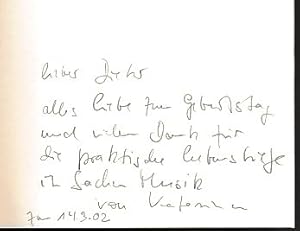 lieber Dieter
alles liebe zum Geburtstag
und vielen Dank für
die praktische Lebenshilfe
in Sachen Musik
von
zum 14.3.02